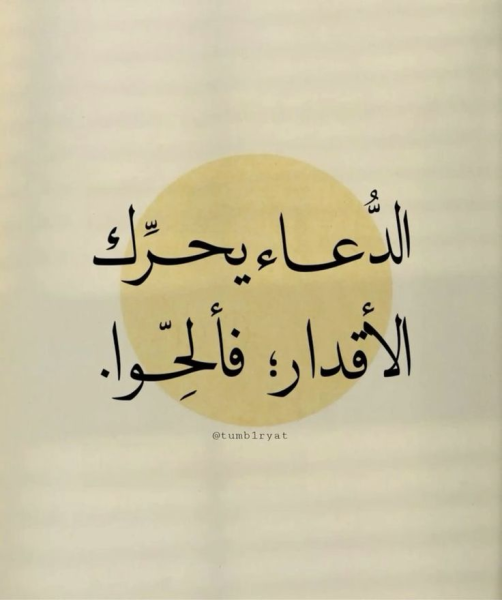 الدُّعاء يحرِّك
الأقدار؛ فألحِّوا.
@tumb1ryat